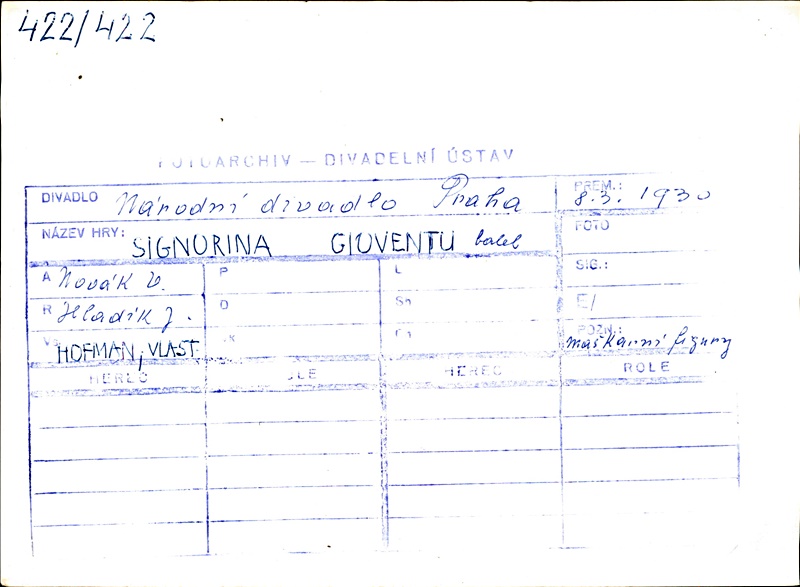 422/422
FOTOARCHIV — DIVADELNÍ ÚSTAV
DIVADLO Národní divadlo Praha PREM.: 8.3. 1930
NÁZEV HRY: SIGNORINA GIOVENTÙ balet FOTO
A Novák V. P L SIG.:
R Hladík J. O Sn E/
HOFMAN, VLAST. POZN.: maškarní figuriny
HEREC ROLE HEREC ROLE